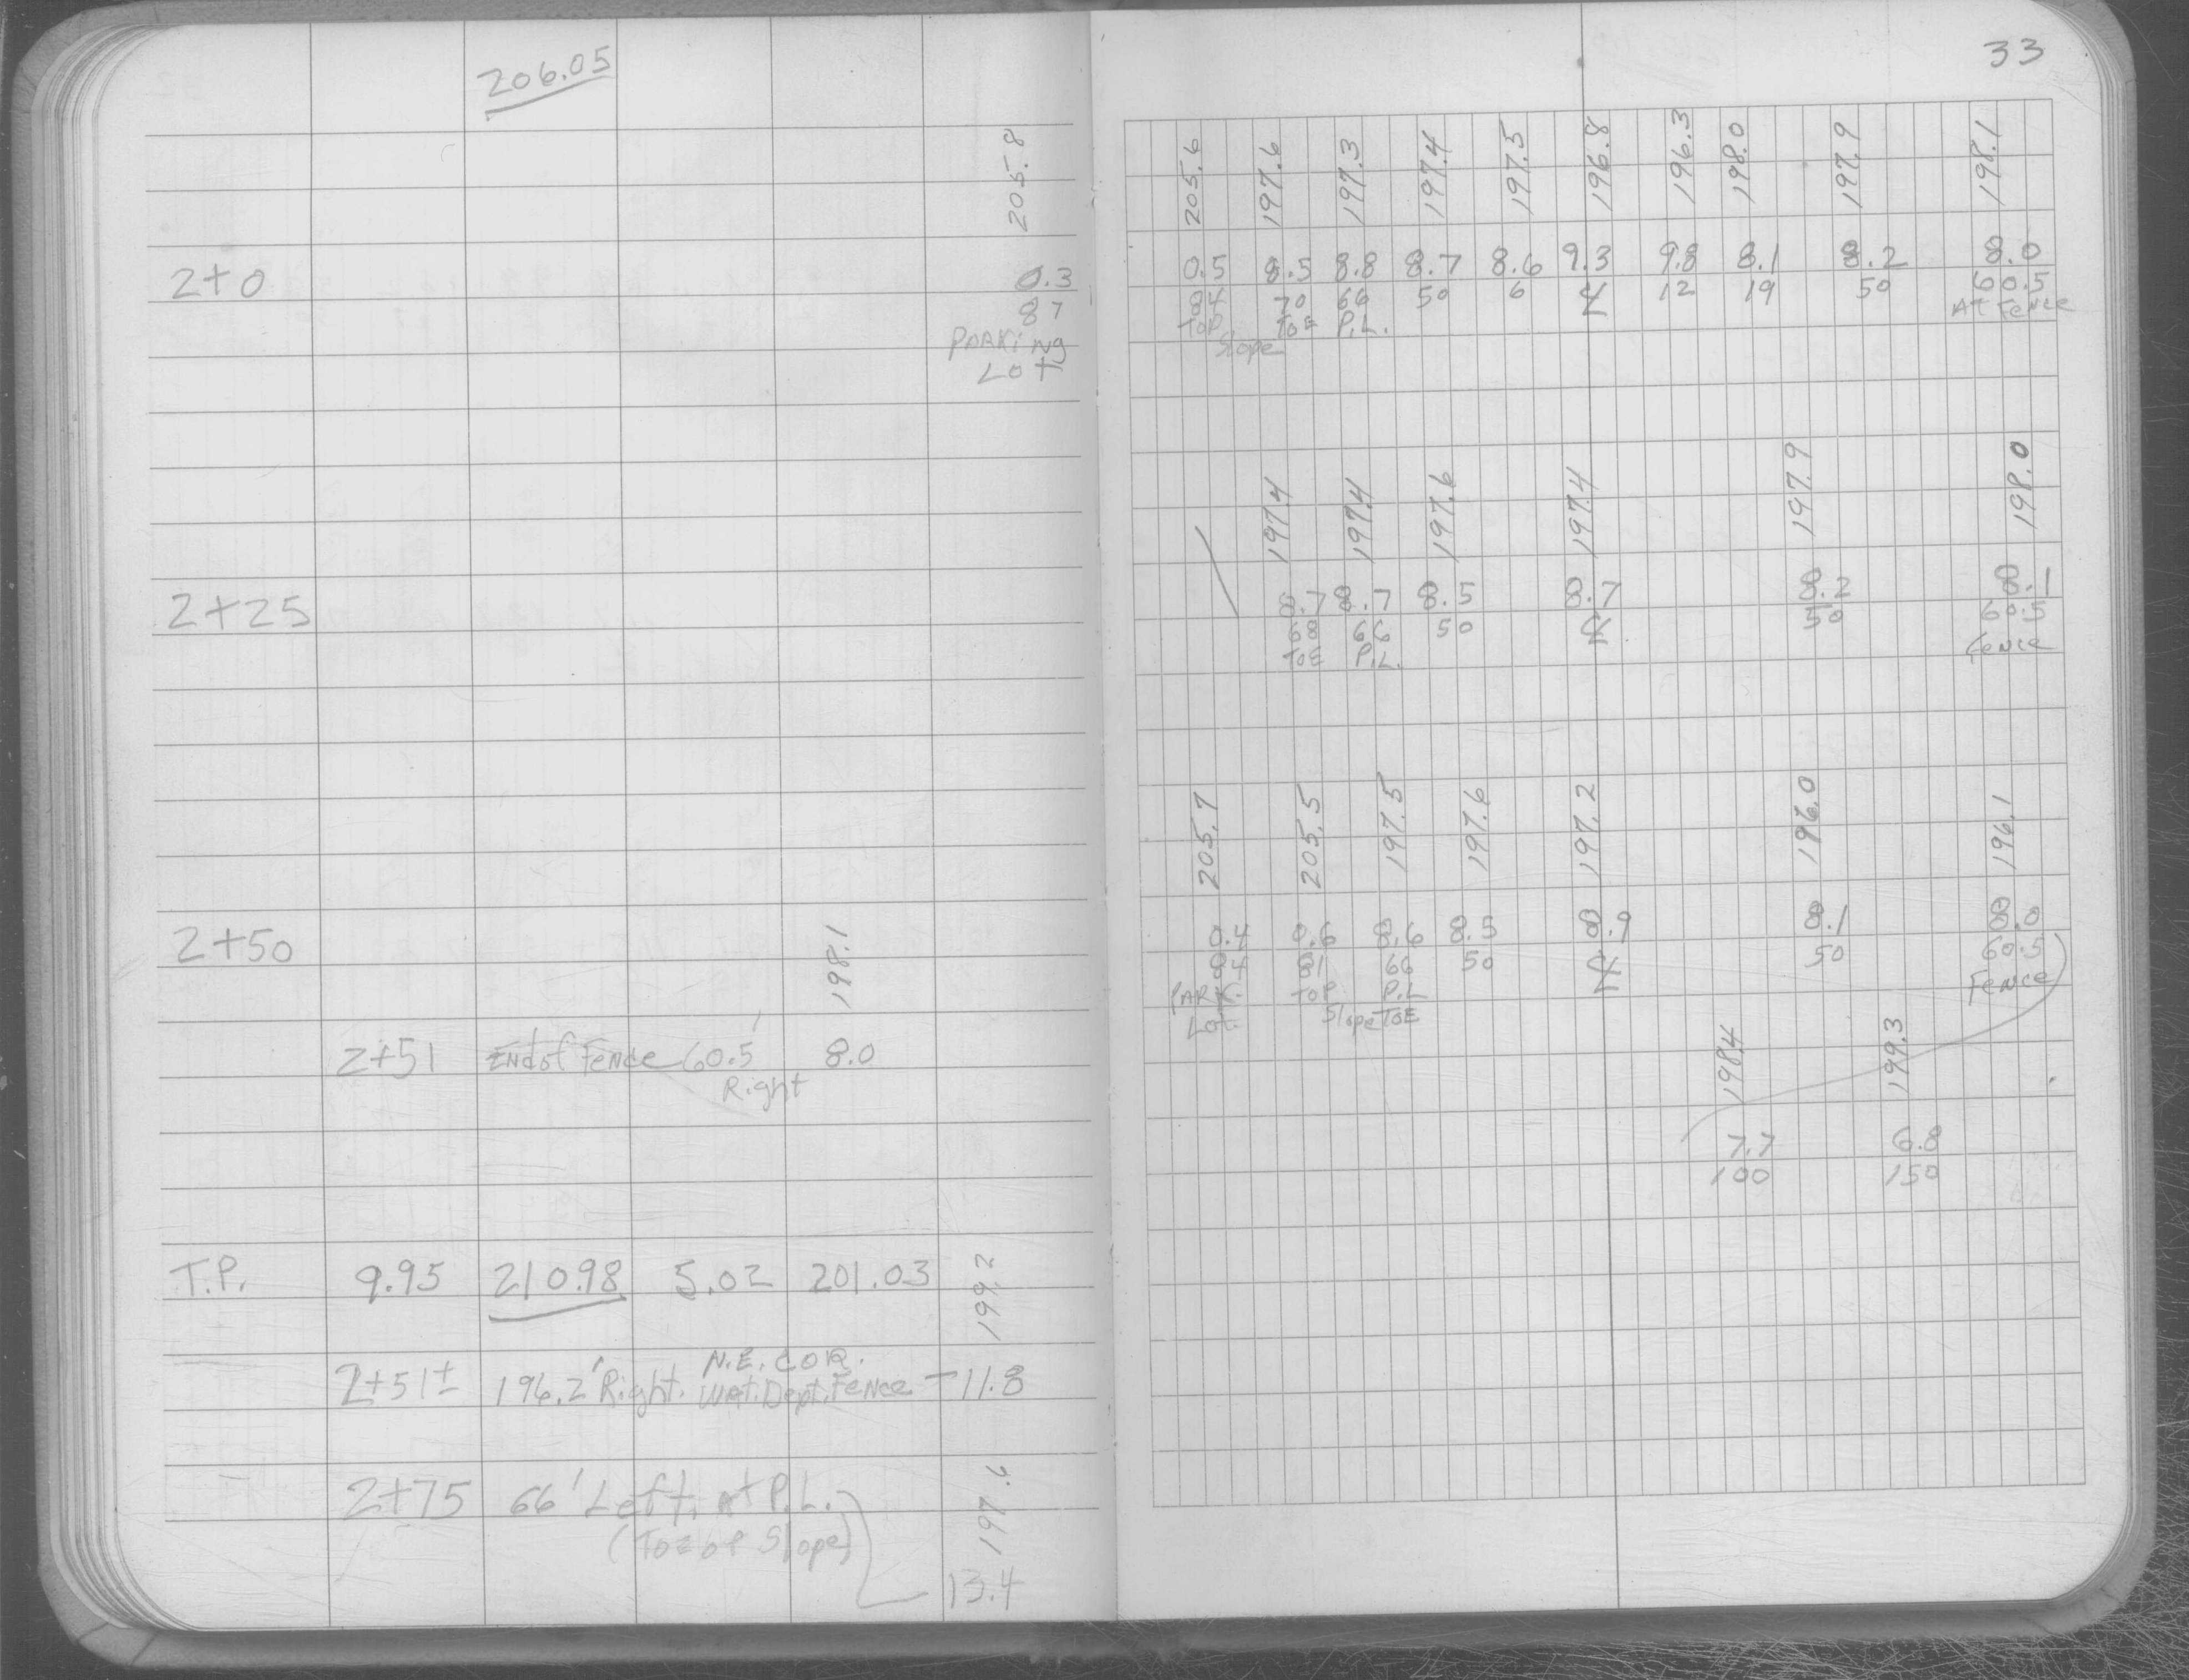 206.05
33
205.8 205.6 197.6 197.3 197.4 197.5 196.8 196.3 198.0 197.9 198.1
2+0 0.3 0.5 8.5 8.8 8.7 8.6 9.3 9.8 8.1 8.2 8.0
87 84 70 66 50 6 ℄ 12 19 50 60.5
PARKING TOP TOE P.L. At Fence
Lot Slope
197.4 197.4 197.6 197.4 197.9 198.0
2+25 8.7 8.7 8.5 8.7 8.2 8.1
68 66 50 ℄ 50 60.5
TOE P.L. fence
205.7 205.5 197.5 197.6 197.2 196.0 196.1
2+50 198.1 0.4 0.6 8.6 8.5 8.9 8.1 8.0
84 81 66 50 ℄ 50 60.5
PARK. TOP P.L Fence
Lot. Slope TOE
2+51 End of Fence 60.5' 8.0 198.4 199.3
Right
7.7 6.8
100 150
T.P. 9.95 210.98 5.02 201.03 199.2
N.E. COR.
2+51± 196.2' Right. Wat. Dept. Fence - 11.8
2+75 66' Left. At P.L. 197.6
(Toe of Slope)
13.4